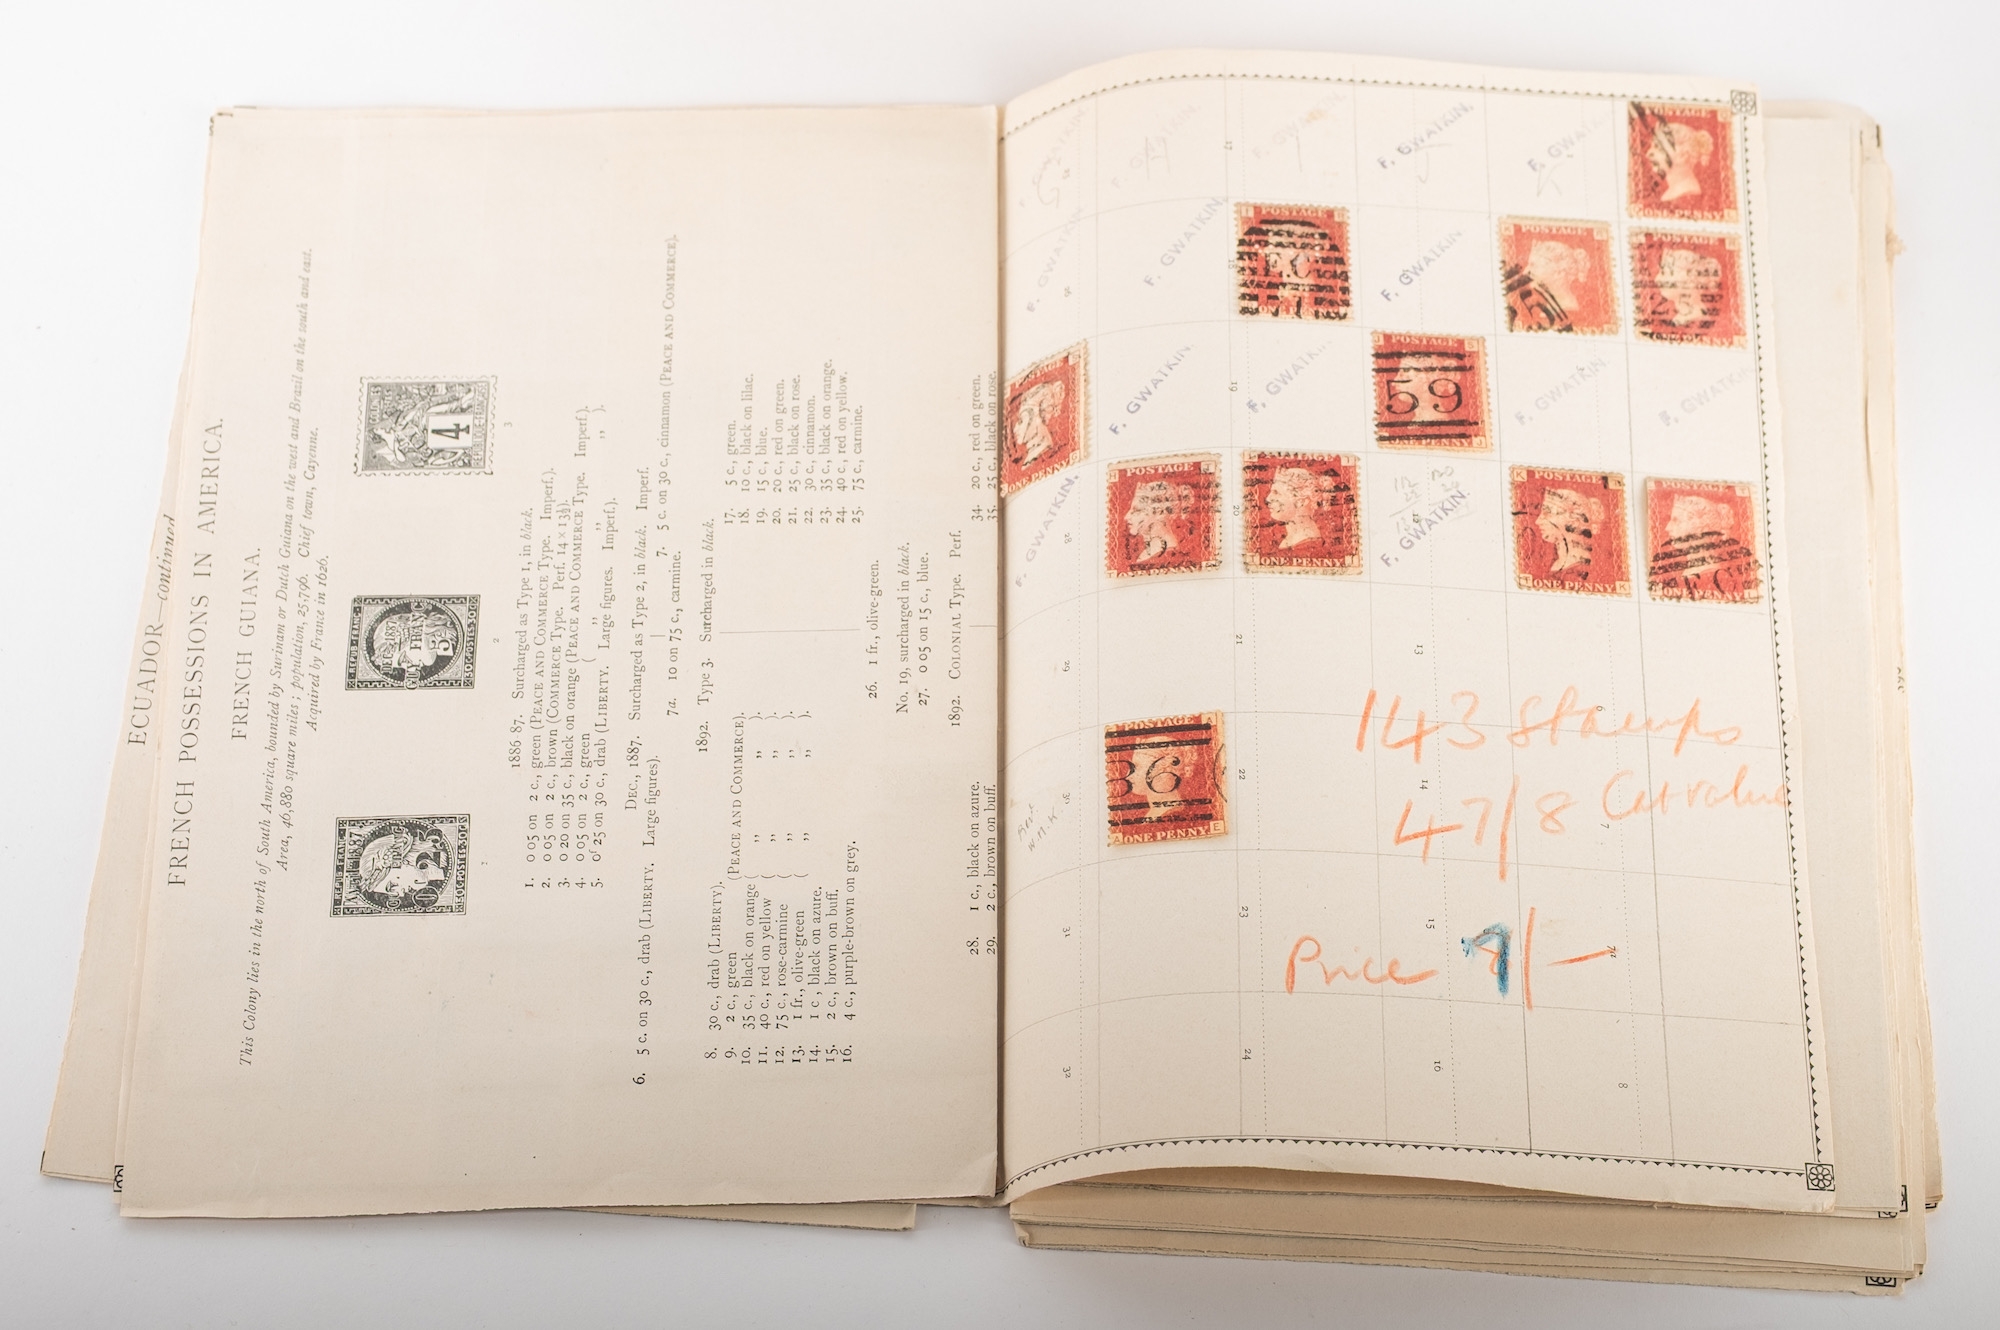 ECUADOR—continued
FRENCH POSSESSIONS IN AMERICA.
FRENCH GUIANA.
This Colony lies in the north of South America, bounded by Surinam or Dutch Guiana on the west and Brazil on the south and east.
Area, 46,880 square miles; population, 25,796. Chief town, Cayenne.
Acquired by France in 1626.
1886 87. Surcharged as Type 1, in black.
1. 0 05 on 2 c., green (PEACE AND COMMERCE Type. Imperf.).
2. 0 05 on 2 c., brown (COMMERCE Type. Perf. 14 × 13½).
3. 0 20 on 35 c., black on orange (PEACE AND COMMERCE Type. Imperf.).
4. 0 05 on 2 c., green ( „ „ ).
5. 0f 25 on 30 c., drab (LIBERTY. Large figures. Imperf.).
DEC., 1887. Surcharged as Type 2, in black. Imperf.
6. 5 c. on 30 c., drab (LIBERTY. Large figures).
7. 5 c. on 30 c., cinnamon (PEACE AND COMMERCE).
7a. 10 on 75 c., carmine.
1892. Type 3. Surcharged in black.
8. 30 c., drab (LIBERTY).
9. 2 c., green (PEACE AND COMMERCE).
10. 35 c., black on orange ( „ „ ).
11. 40 c., red on yellow ( „ „ ).
12. 75 c., rose-carmine ( „ „ ).
13. 1 fr., olive-green ( „ „ ).
14. 1 c, black on azure.
15. 2 c., brown on buff.
16. 4 c., purple-brown on grey.
17. 5 c., green.
18. 10 c., black on lilac.
19. 15 c., blue.
20. 20 c., red on green.
21. 25 c., black on rose.
22. 30 c., cinnamon.
23. 35 c., black on orange.
24. 40 c., red on yellow.
25. 75 c., carmine.
26. 1 fr., olive-green.
No. 19, surcharged in black.
27. 0 05 on 15 c., blue.
1892. COLONIAL TYPE. Perf.
28. 1 c., black on azure.
29. 2 c., brown on buff.
34. 20 c., red on green.
35. 25 c., black on rose.
F. GWATKIN.
F. GWATKIN.
F. GWATKIN.
F. GWATKIN.
F. GWATKIN.
F. GWATKIN.
F. GWATKIN.
F. GWATKIN.
F. GWATKIN.
F. GWATKIN.
POSTAGE
ONE PENNY
POSTAGE
E.C
ONE PENNY
POSTAGE
POSTAGE
25
59
ONE PENNY
ONE PENNY
POSTAGE
ONE PENNY
ONE PENNY
POSTAGE
E.C
POSTAGE
36
ONE PENNY
143 Stamps
47/8 Cat value
Price 7/–
17
18
19
20
21
22
23
24
28
29
30
31
32
12
13
14
15
16
6
7
8